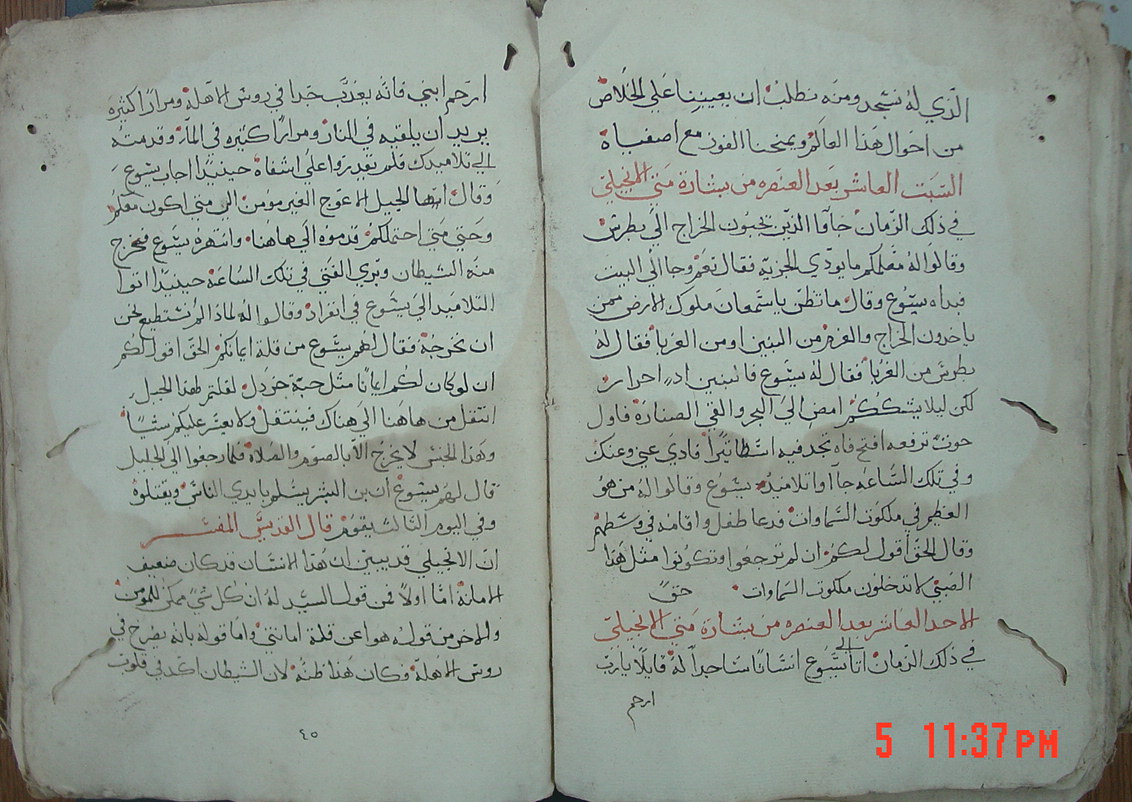 الذي له نسجد ومنه نطلب ان يعيننا على الخلاص
من احوال هذا العالم ويمنحنا الفوز مع اصفياه
السبت العاشر بعد العنصره من بشارة متى الانجيلي
في ذلك الزمان جاوا الذين يجبون الخراج الى بطرس
وقالوا له معلمكم ما يودي الجزيه فقال نعم وجا الى البيت
فبداه يسوع وقال ما تظن ياسمعان ملوك الارض ممن
ياخدون الخراج والغرم من البنين او من الغربا فقال له
بطرس من الغربا فقال له يسوع فالبنين اذا احرار
لكن ليلا يشككم امض الى البحر والقي الصنارة فاول
حوت ترفعه افتح فاه تجد فيه اسطاتيرا فادي عني وعنك
وفي تلك الساعه جا اوا تلاميد يسوع وقالوا له من هو
العظيم في ملكوت السماوات فدعا طفل واقامه في وسطهم
وقال الحق اقول لكم ان لم ترجعوا وتكونوا مثل هذا
الصبي لا تدخلون ملكوت السماوات
الاحد العاشر بعد العنصره من بشارة متى الانجيلي
في ذلك الزمان اتا الى يسوع انسانا ساجدا له قايلا يارب
ارحم
ارحم ابني فانه يعذب جدا في روس الاهلة ومرارا كثيره
يريد ان يلقيه في النار ومرارا كثيره في الماء وقدمته
الى تلاميدك فلم يقدروا على اشفاه حينيدا اجاب يسوع
وقال ايها الجيل الاعوج الغير مومن الى متى اكون معكم
وحتى متى احتملكم قدموه الي هاهنا وانتهره يسوع فخرج
منه الشيطان وبري الفتى في تلك الساعه حينيدا اتوا
التلاميد الى يسوع في انفراد وقالوا له لماذا لم نستطيع نحن
ان نخرجه فقال لهم يسوع من قلة ايمانكم الحق اقول لكم
ان لو كان لكم ايمانا مثل حبة خردل لقلتم لهذا الجبل
انتقل من هاهنا الى هناك فينتقل ولا يعسر عليكم شيا
وهذا الجنس لا يخرج الا بالصوم والصلاة فلما رجعوا الى الجليل
قال لهم يسوع ان بن البشر يسلم بايدي الناس ويقتلوه
وفي اليوم الثالث يقوم قال القديس المفسر
ان الانجيلي قد يبين ان هذا الانسان قد كان ضعيف
الامانة اما اولا فمن قول السيد له ان كل شي ممكن للمومن
والاخر من قوله هو اعن قلة امانتي واما قوله بانه يصرع في
روس الاهلة فكان هذا ظنه لان الشيطان اكد في قلوب
٤٥
5 11:37 PM